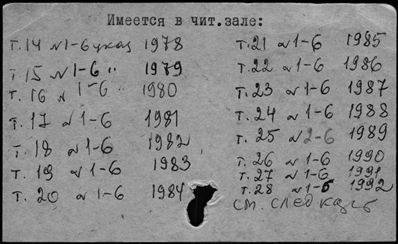 Имеется в чит. зале:
т. 14 №1-6 указ 1978
т 15 №1-6 " 1979
т. 16 №1-6 " 1980
т. 17 №1-6 1981
т. 18 №1-6 1982
т. 19 №1-6 1983
т. 20 №1-6 1984
т. 21 №1-6 1985
т. 22 №1-6 1986
т. 23 №1-6 1987
т. 24 №1-6 1988
т. 25 №2-6 1989
т. 26 №1-6 1990
т. 27 №1-6 1991
т. 28 №1-6 1992
см. след